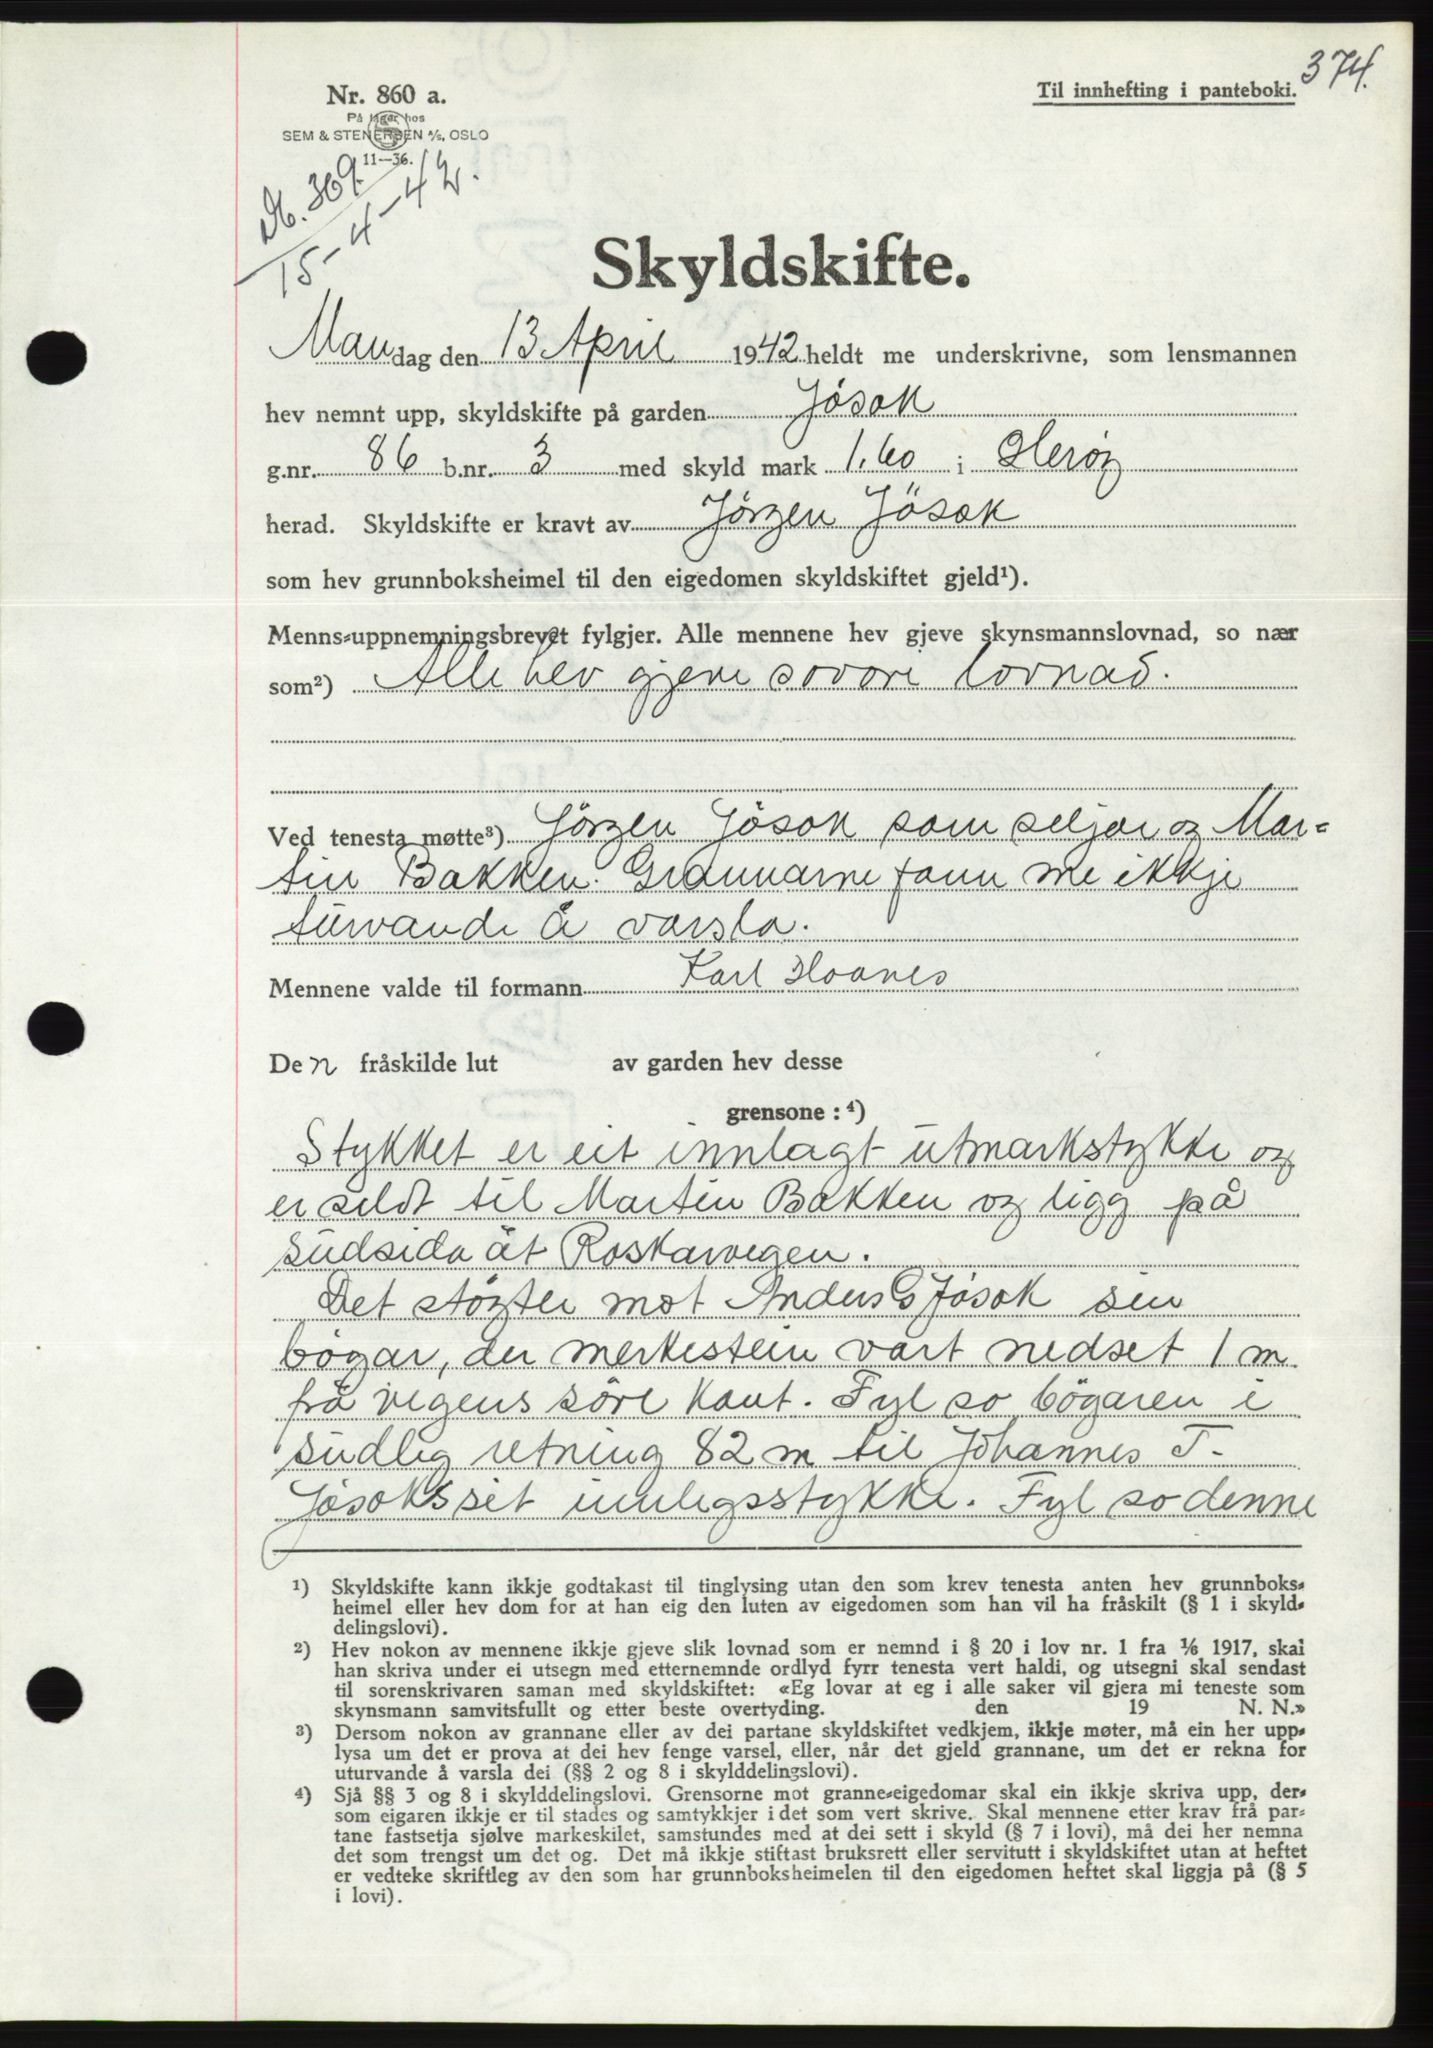 374.
Nr. 860 a.
På lager hos
SEM & STENERSEN A/S, OSLO
11—36.
Til innhefting i panteboki.
Db. 369.
15-4-42.
Skyldskifte.
Mandag den 13 April 1942 heldt me underskrivne, som lensmannen
hev nemnt upp, skyldskifte på garden Jósok
g.nr. 86 b.nr. 3 med skyld mark 1,60 i Herøy
herad. Skyldskifte er kravt av Jörgen Jösok
som hev grunnboksheimel til den eigedomen skyldskiftet gjeld¹).
Menns-uppnemningsbrevet fylgjer. Alle mennene hev gjeve skynsmannslovnad, so nær
som²) Alle hev gjeve sovore lovnad.
Ved tenesta møtte³) Jörgen Jósok som seljar og Mar=
tin Bakken. Grannarne fann me ikkje
turvande å varsla.
Mennene valde til formann Karl Hoanes
Den fråskilde lut av garden hev desse
grensone : ⁴)
Stykket er eit innlagt utmarkstykke og
er seldt til Martin Bakken og ligg på
sudsida åt Roskarvegen.
Det stöyter mot Anders G Jósok sin
bögar, der merkestein vart nedset 1 m
frå vegens söre kant. Fyl so bögaren i
sudlig retning 82 m til Johannes T.
Jósoks sit innlegsstykke. Fyl so denne
¹) Skyldskifte kann ikkje godtakast til tinglysing utan den som krev tenesta anten hev grunnboks-
heimel eller hev dom for at han eig den luten av eigedomen som han vil ha fråskilt (§ 1 i skyld-
delingslovi).
²) Hev nokon av mennene ikkje gjeve slik lovnad som er nemnd i § 20 i lov nr. 1 fra 1/6 1917, skal
han skriva under ei utsegn med etternemnde ordlyd fyrr tenesta vert haldi, og utsegni skal sendast
til sorenskrivaren saman med skyldskiftet: «Eg lovar at eg i alle saker vil gjera mi teneste som
skynsmann samvitsfullt og etter beste overtyding. den 19 N. N.»
³) Dersom nokon av grannane eller av dei partane skyldskiftet vedkjem, ikkje møter, må ein her upp-
lysa um det er prova at dei hev fenge varsel, eller, når det gjeld grannane, um det er rekna for
uturvande å varsla dei (§§ 2 og 8 i skylddelingslovi).
⁴) Sjå §§ 3 og 8 i skylddelingslovi. Grensorne mot granne-eigedomar skal ein ikkje skriva upp, der-
som eigaren ikkje er til stades og samtykkjer i det som vert skrive. Skal mennene etter krav frå par-
tane fastsetja sjølve markeskilet, samstundes med at dei sett i skyld (§ 7 i lovi), må dei her nemna
det som trengst um det og. Det må ikkje stiftast bruksrett eller servitutt i skyldskiftet utan at heftet
er vedteke skriftleg av den som har grunnboksheimelen til den eigedomen heftet skal liggja på (§ 5
i lovi).